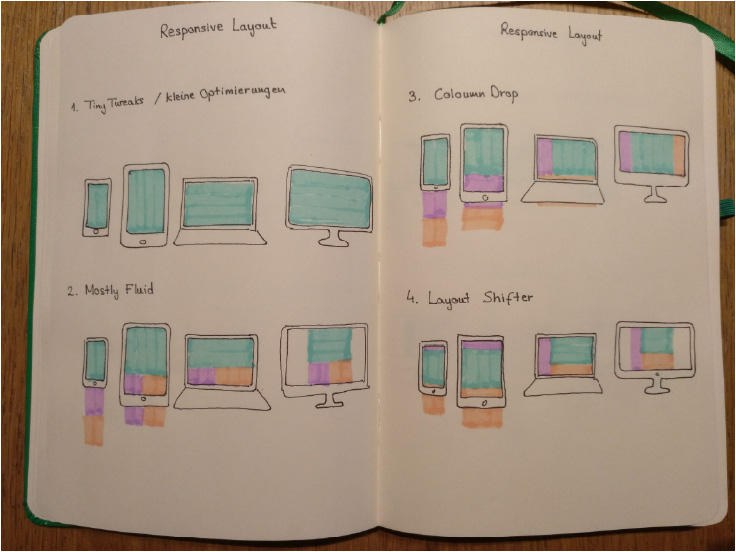 Responsive Layout
1. Tiny Tweaks / kleine Optimierungen
2. Mostly Fluid
Responsive Layout
3. Coloumn Drop
4. Layout Shifter